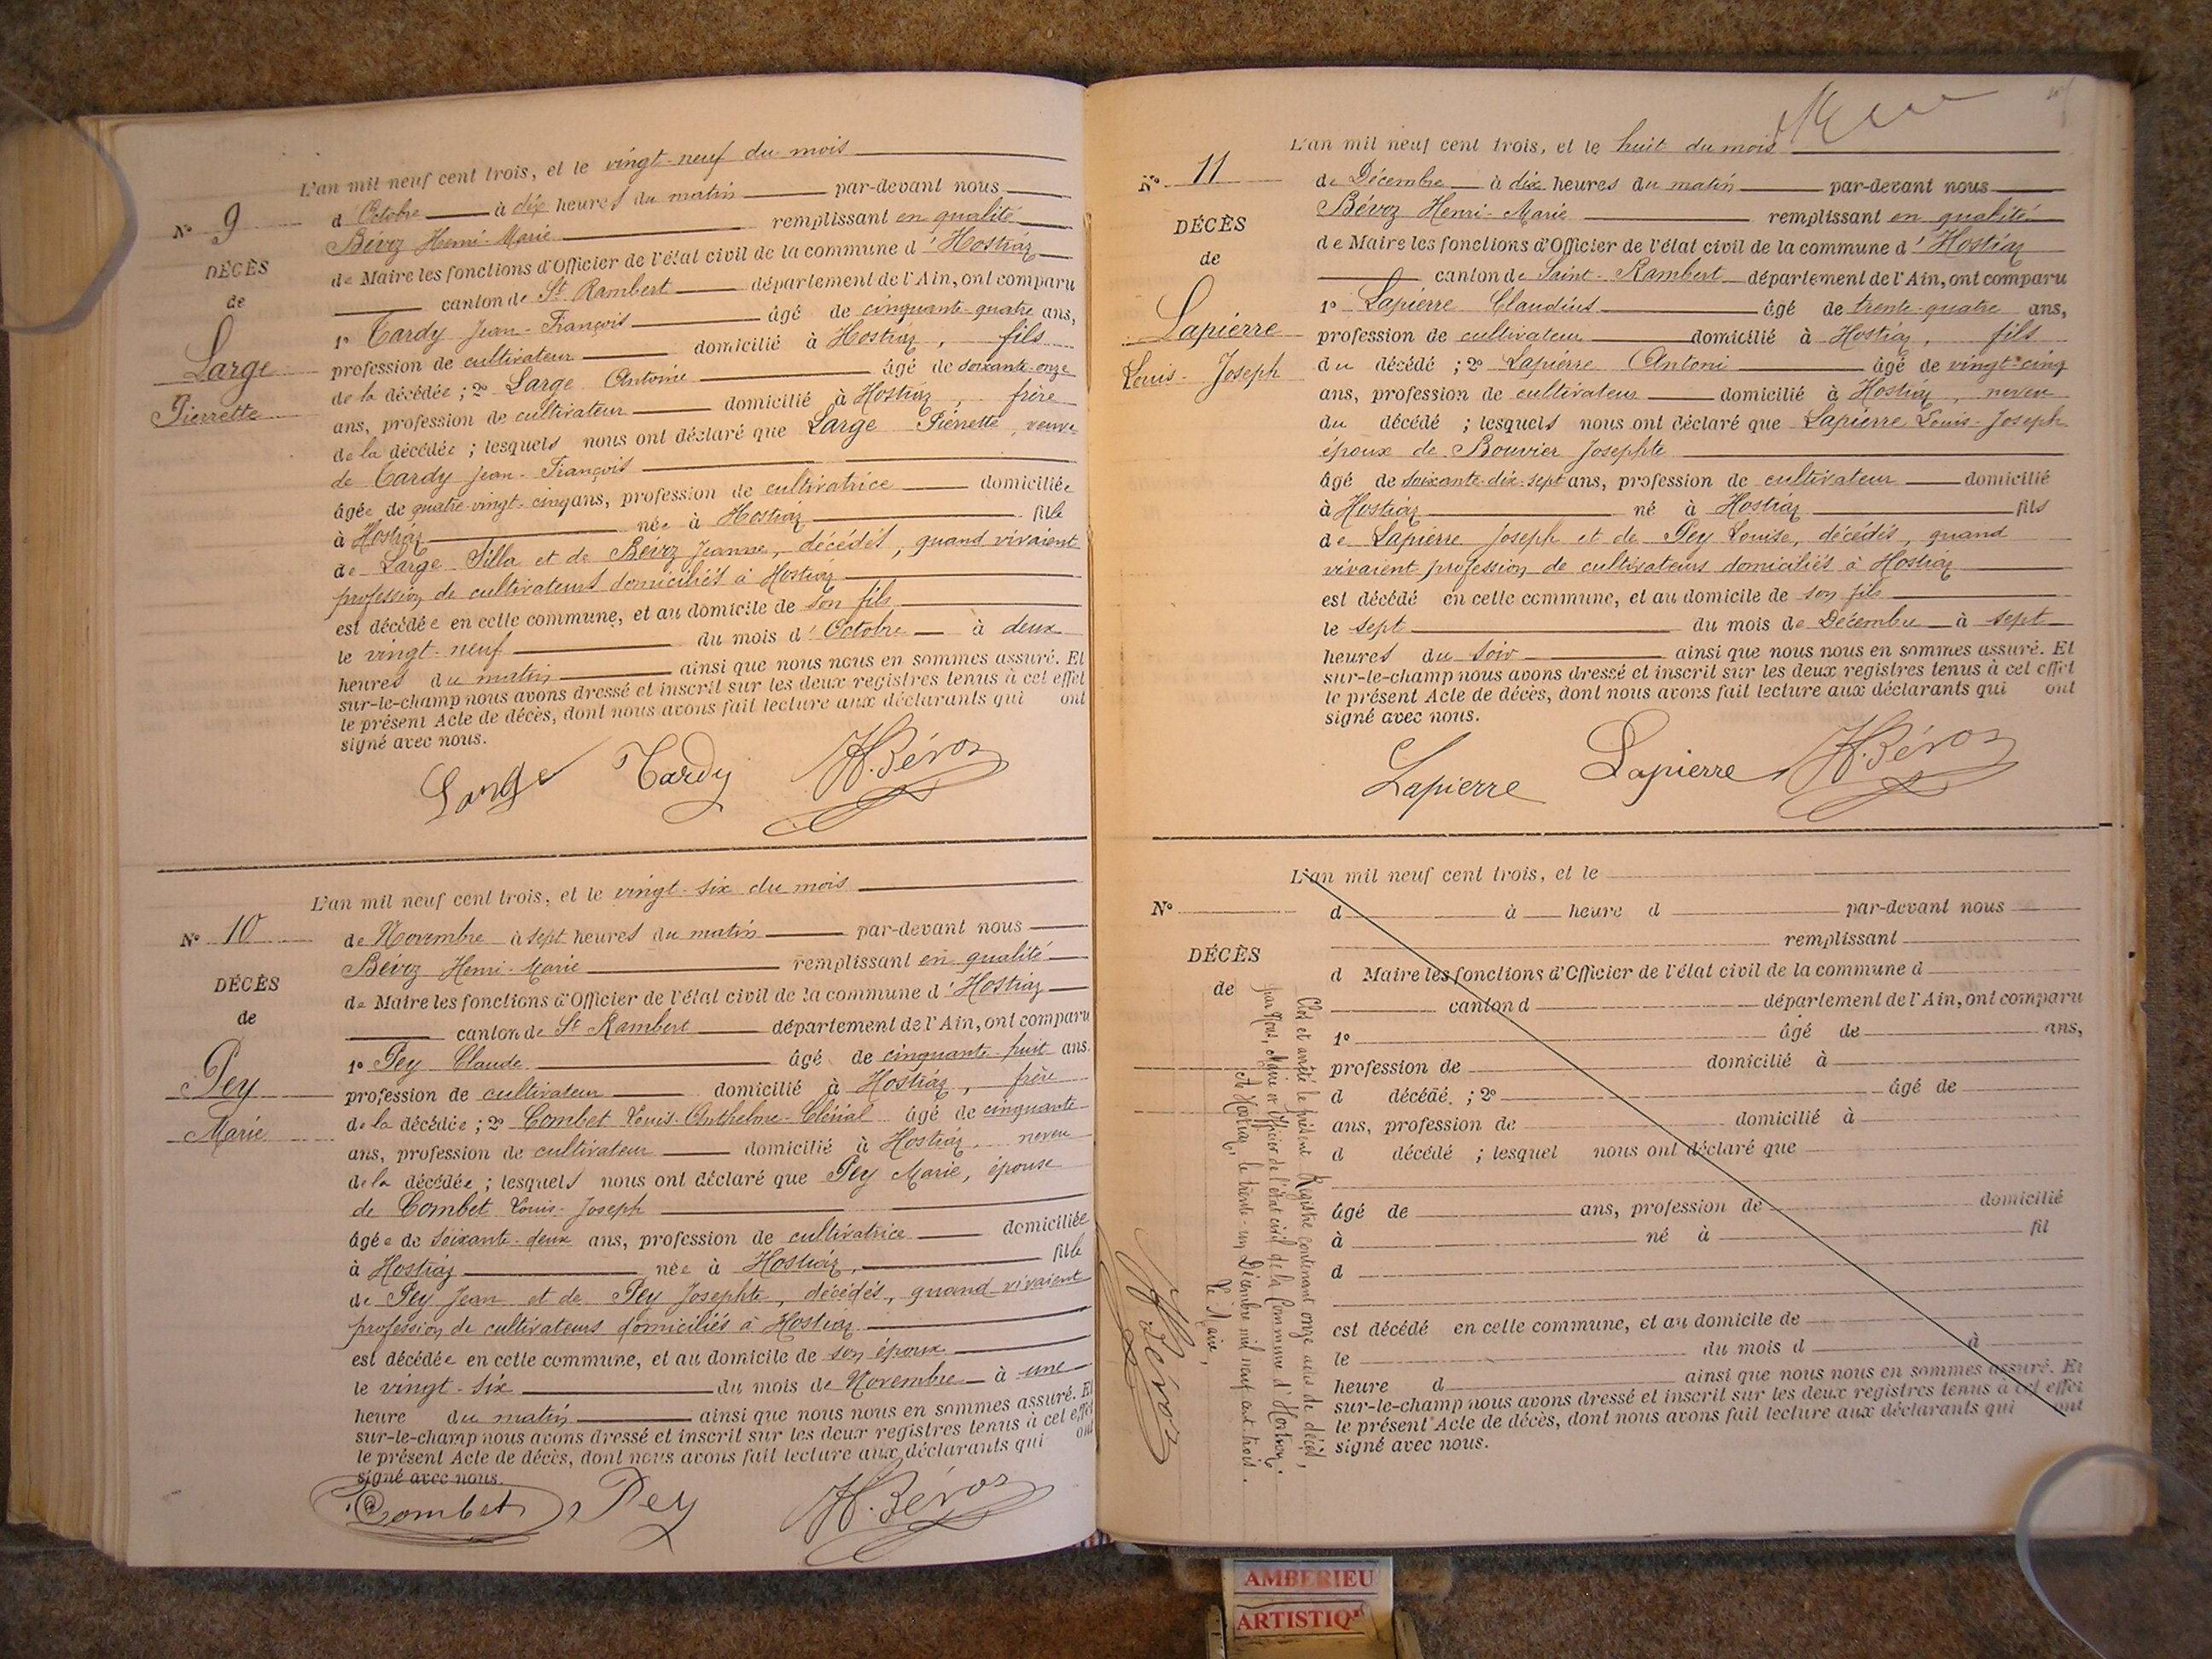 L'an mil neuf cent trois, et le vingt-neuf du mois
N° 9
d'Octobre à dix heures du matin par-devant nous
Bévoz Henri-Marie remplissant en qualité
DÉCÈS
de Maire les fonctions d'Officier de l'état civil de la commune d'Hostiaz
de
canton de St Rambert département de l'Ain, ont comparu
1° Tardy Jean-François âgé de cinquante-quatre ans,
Large
profession de cultivateur domicilié à Hostiaz, fils
de la décédée ; 2° Large Antoine âgé de soixante-onze
Pierrette
ans, profession de cultivateur domicilié à Hostiaz, frère
de la décédée ; lesquels nous ont déclaré que Large Pierrette, veuve
de Tardy Jean-François
âgée de quatre-vingt-cinq ans, profession de cultivatrice domiciliée
à Hostiaz née à Hostiaz fille
de Large Silla et de Bévoz Jeanne, décédés, quand vivaient
profession de cultivateurs domiciliés à Hostiaz
est décédée en cette commune, et au domicile de son fils
le vingt-neuf du mois d'Octobre à deux
heures du matin ainsi que nous nous en sommes assuré. Et
sur-le-champ nous avons dressé et inscrit sur les deux registres tenus à cet effet
le présent Acte de décès, dont nous avons fait lecture aux déclarants qui ont
signé avec nous.
Large Tardy H. Bévoz
L'an mil neuf cent trois, et le vingt-six du mois
N° 10
de Novembre à sept heures du matin par-devant nous
Bévoz Henri-Marie remplissant en qualité
DÉCÈS
de Maire les fonctions d'Officier de l'état civil de la commune d'Hostiaz
de
canton de St Rambert département de l'Ain, ont comparu
1° Pey Claude âgé de cinquante-huit ans
Pey
profession de cultivateur domicilié à Hostiaz, frère
de la décédée ; 2° Combet Louis-Anthelme-Clérial âgé de cinquante
Marie
ans, profession de cultivateur domicilié à Hostiaz, neveu
de la décédée ; lesquels nous ont déclaré que Pey Marie, épouse
de Combet Louis-Joseph
âgée de soixante-deux ans, profession de cultivatrice domiciliée
à Hostiaz née à Hostiaz, fille
de Pey Jean et de Pey Josephte, décédés, quand vivaient
profession de cultivateurs domiciliés à Hostiaz
est décédée en cette commune, et au domicile de son époux
le vingt-six du mois de Novembre à une
heure du matin ainsi que nous nous en sommes assuré. Et
sur-le-champ nous avons dressé et inscrit sur les deux registres tenus à cet effet
le présent Acte de décès, dont nous avons fait lecture aux déclarants qui ont
signé avec nous.
Combet Pey H. Bévoz
L'an mil neuf cent trois, et le huit du mois
N° 11
de Décembre à dix heures du matin par-devant nous
Bévoz Henri-Marie remplissant en qualité
DÉCÈS
de Maire les fonctions d'Officier de l'état civil de la commune d'Hostiaz
de
canton de Saint-Rambert département de l'Ain, ont comparu
1° Lapierre Claudius âgé de trente-quatre ans,
Lapierre
profession de cultivateur domicilié à Hostiaz, fils
Louis-Joseph
du décédé ; 2° Lapierre Antoni âgé de vingt-cinq
ans, profession de cultivateur domicilié à Hostiaz, neveu
du décédé ; lesquels nous ont déclaré que Lapierre Louis-Joseph
époux de Bouvier Josephte
âgé de soixante-dix-sept ans, profession de cultivateur domicilié
à Hostiaz né à Hostiaz fils
de Lapierre Joseph et de Pey Louise, décédés, quand
vivaient profession de cultivateurs domiciliés à Hostiaz
est décédé en cette commune, et au domicile de son fils
le sept du mois de Décembre à sept
heures du soir ainsi que nous nous en sommes assuré. Et
sur-le-champ nous avons dressé et inscrit sur les deux registres tenus à cet effet
le présent Acte de décès, dont nous avons fait lecture aux déclarants qui ont
signé avec nous.
Lapierre Lapierre H. Bévoz
L'an mil neuf cent trois, et le
N°
d à heure d par-devant nous
remplissant
DÉCÈS
d Maire les fonctions d'Officier de l'état civil de la commune d
de
canton d département de l'Ain, ont comparu
1° âgé de ans,
profession de domicilié à
d décédé ; 2° âgé de
ans, profession de domicilié à
d décédé ; lesquel nous ont déclaré que
âgé de ans, profession de domicilié
à né à fil
d
est décédé en cette commune, et au domicile de
le du mois d à
heure d ainsi que nous nous en sommes assuré. Et
sur-le-champ nous avons dressé et inscrit sur les deux registres tenus à cet effet
le présent Acte de décès, dont nous avons fait lecture aux déclarants qui ont
signé avec nous.
Clos et arrêté le présent Registre contenant onze actes de décès,
par Nous, Maire et Officier de l'état civil de la Commune d'Hostiaz.
A Hostiaz, le trente-un Décembre mil neuf cent trois.
Le Maire,
H. Bévoz
AMBERIEU
ARTISTIQ